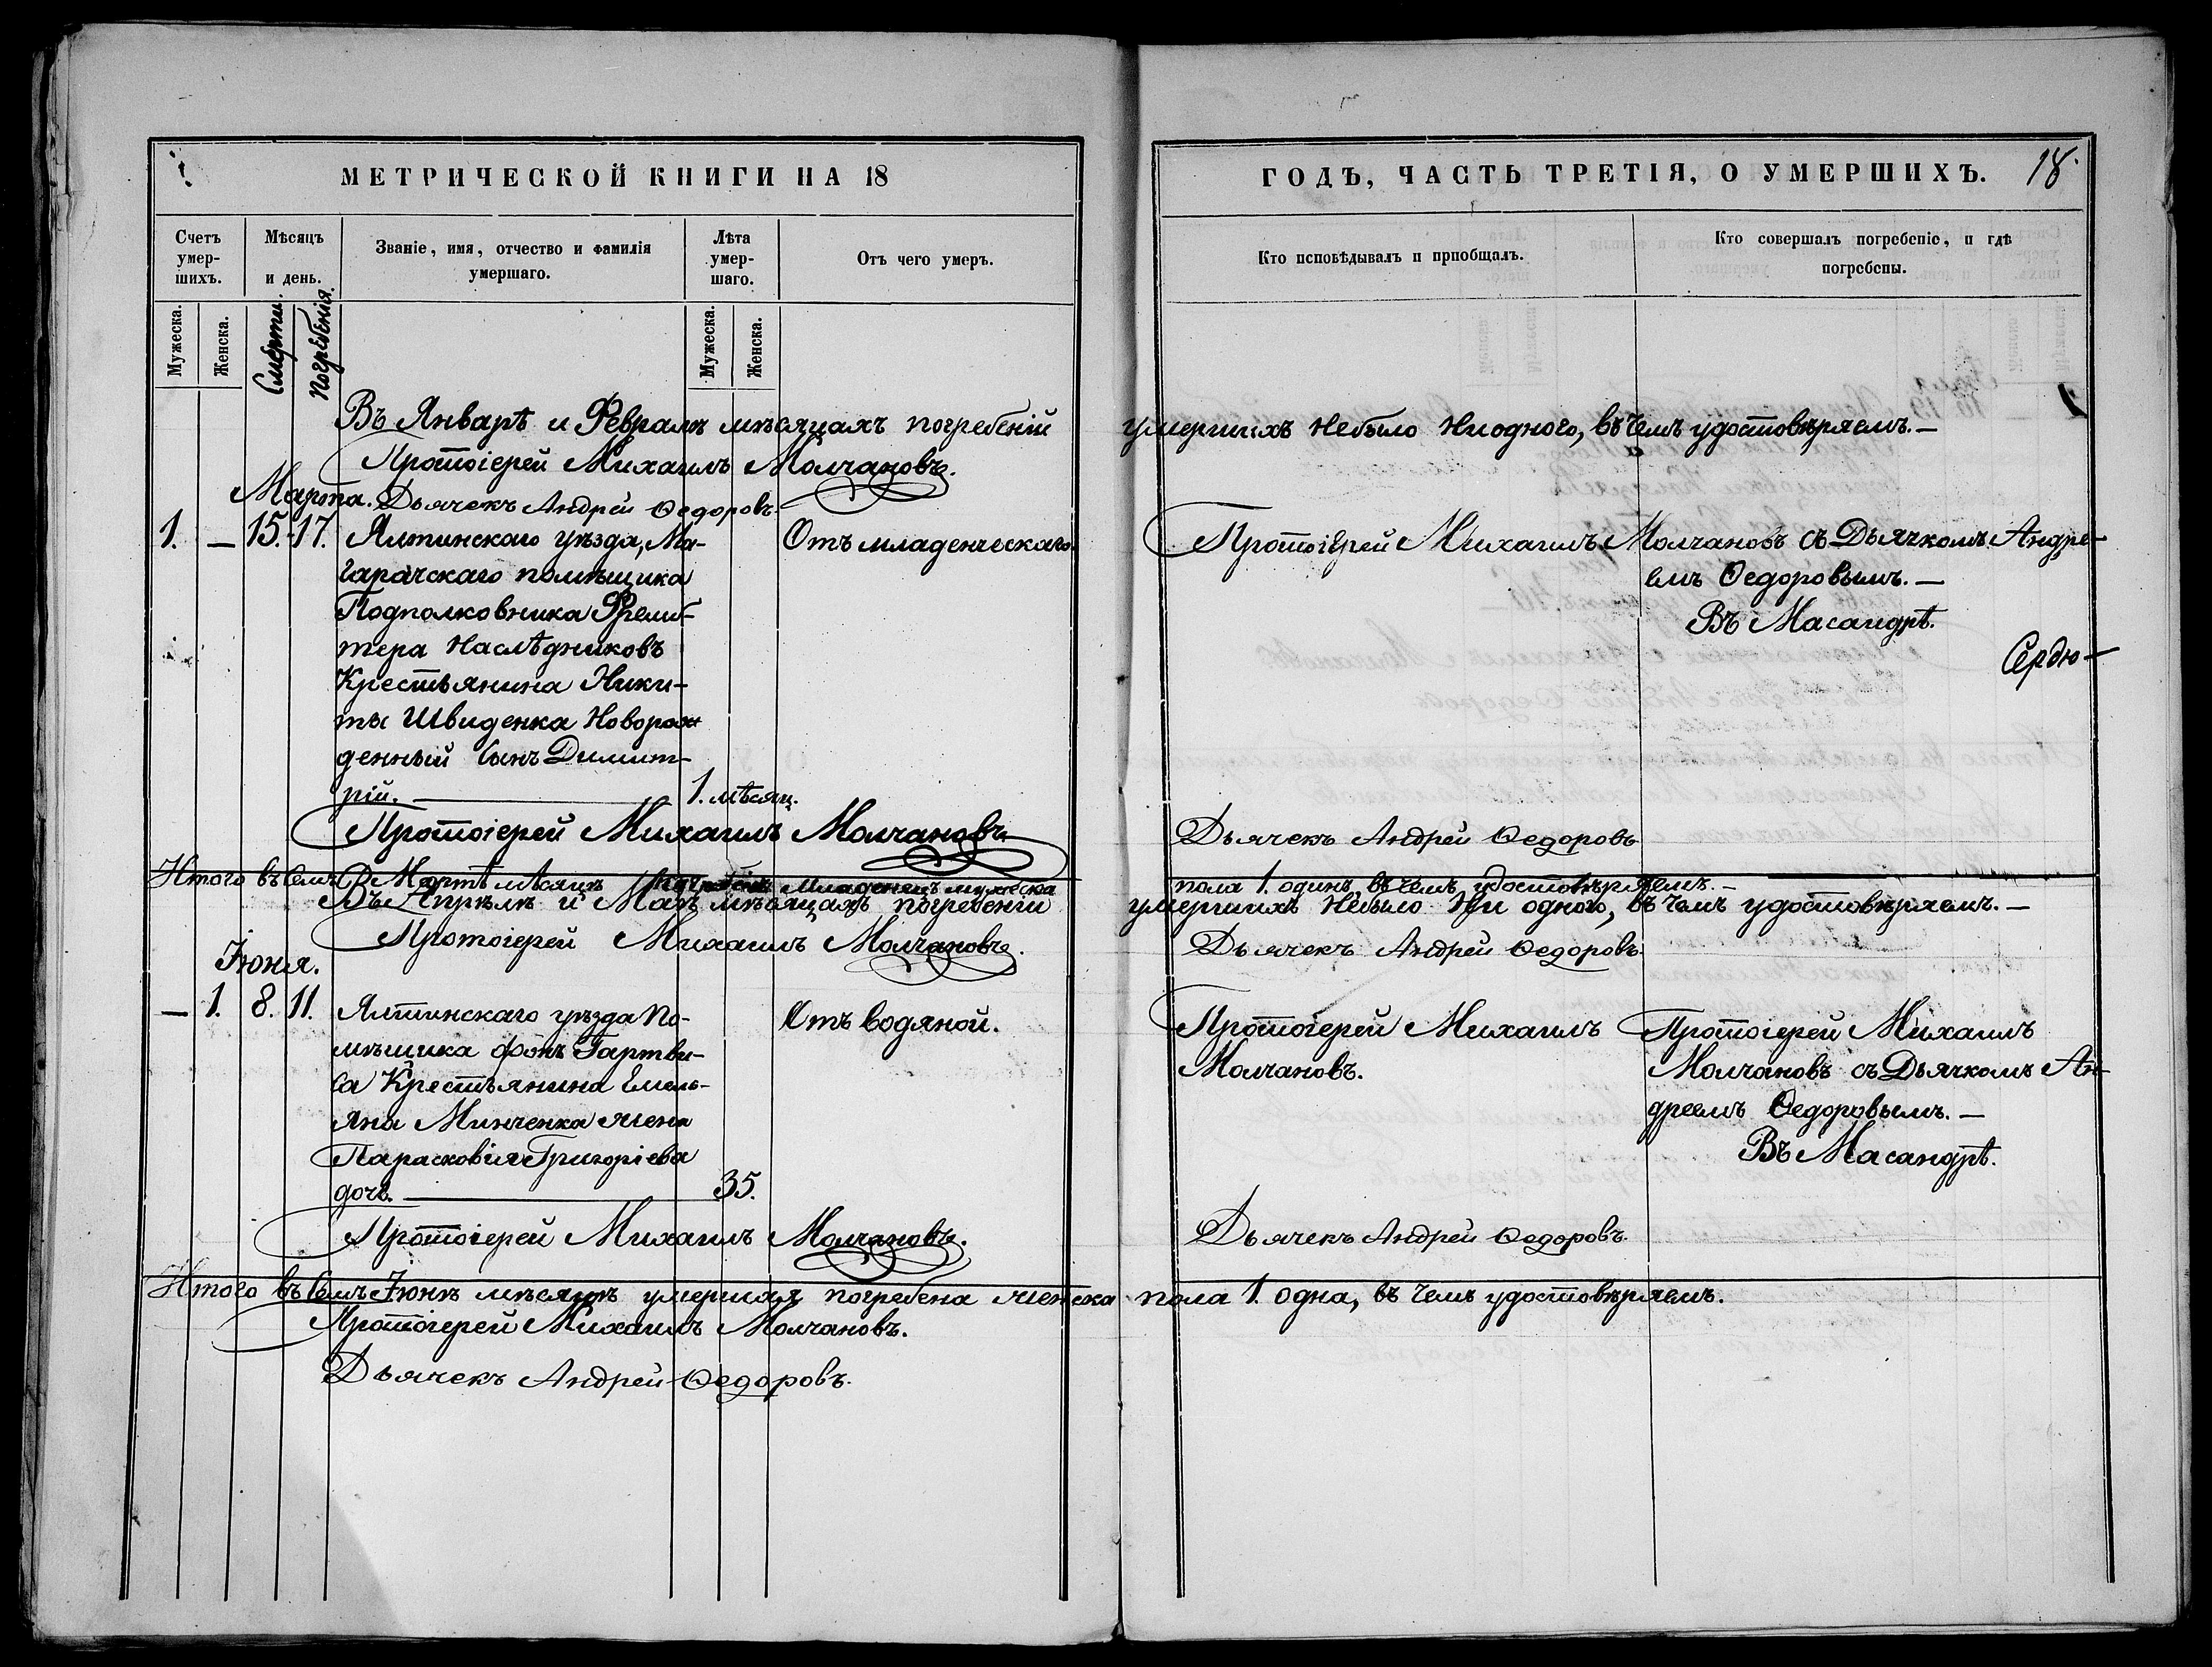 МЕТРИЧЕСКОЙ КНИГИ НА 18
Счетъ умер-шихъ.
Мѣсяцъ и день.
Званіе, имя, отчество и фамилія умершаго.
Лѣта умер-шаго.
Отъ чего умеръ.
Мужеска.
Женска.
Смерти.
Погребенія.
Мужеска.
Женска.
Въ Январѣ и Февралѣ мѣсяцахъ погребеній
Протоіерей Михаилъ Молчановъ.
Марта. Дьячекъ Андрей Ѳедоровъ.
1. — 15. 17. Ялтинскаго уѣзда, Ма- Отъ младенческаго.
гарачскаго помѣщика
Подполковника
тера Наслѣдниковъ
Крестьянина Ники-
ты Швиденка Новорож
денный Сынъ Димит-
рій. — 1. мѣсяц.
Протоіерей Михаилъ Молчановъ
Итого въ семъ Мартѣ мѣсяцѣ младенецъ мужеска
Въ Апрѣлѣ и Маѣ мѣсяцахъ погребеній
Протоіерей Михаилъ Молчановъ.
Іюня.
— 1. 8. 11. Ялтинскаго уѣзда По- Отъ водяной.
мѣщика фонъ Гартви-
са Крестьянина Емель-
яна Минченка жена
Парасковія Григоріева
дочь. — 35.
Протоіерей Михаилъ Молчановъ.
Итого въ семъ Іюнѣ мѣсяцѣ умершая погребена женска
Протоіерей Михаилъ Молчановъ.
Дьячекъ Андрей Ѳедоровъ.
ГОДЪ, ЧАСТЬ ТРЕТІЯ, О УМЕРШИХЪ. 18.
Кто исповѣдывалъ и пріобщалъ.
Кто совершалъ погребеніе, и гдѣ погребены.
умершихъ небыло ниодного, въ чемъ удостовѣряемъ. —
Протоіерей Михаилъ Молчановъ съ Дьячкомъ Андре-
емъ Ѳедоровымъ. —
Въ Масандрѣ.
Сердю-
Дьячекъ Андрей Ѳедоровъ
пола 1. одинъ, въ чемъ удостовѣряемъ. —
умершихъ небыло ни одного, въ чемъ удостовѣряемъ. —
Дьячекъ Андрей Ѳедоровъ
Протоіерей Михаилъ Протоіерей Михаилъ
Молчановъ. Молчановъ съ Дьячкомъ Ан-
дреемъ Ѳедоровымъ. —
Въ Масандрѣ.
Дьячекъ Андрей Ѳедоровъ.
пола 1. одна, въ чемъ удостовѣряемъ.